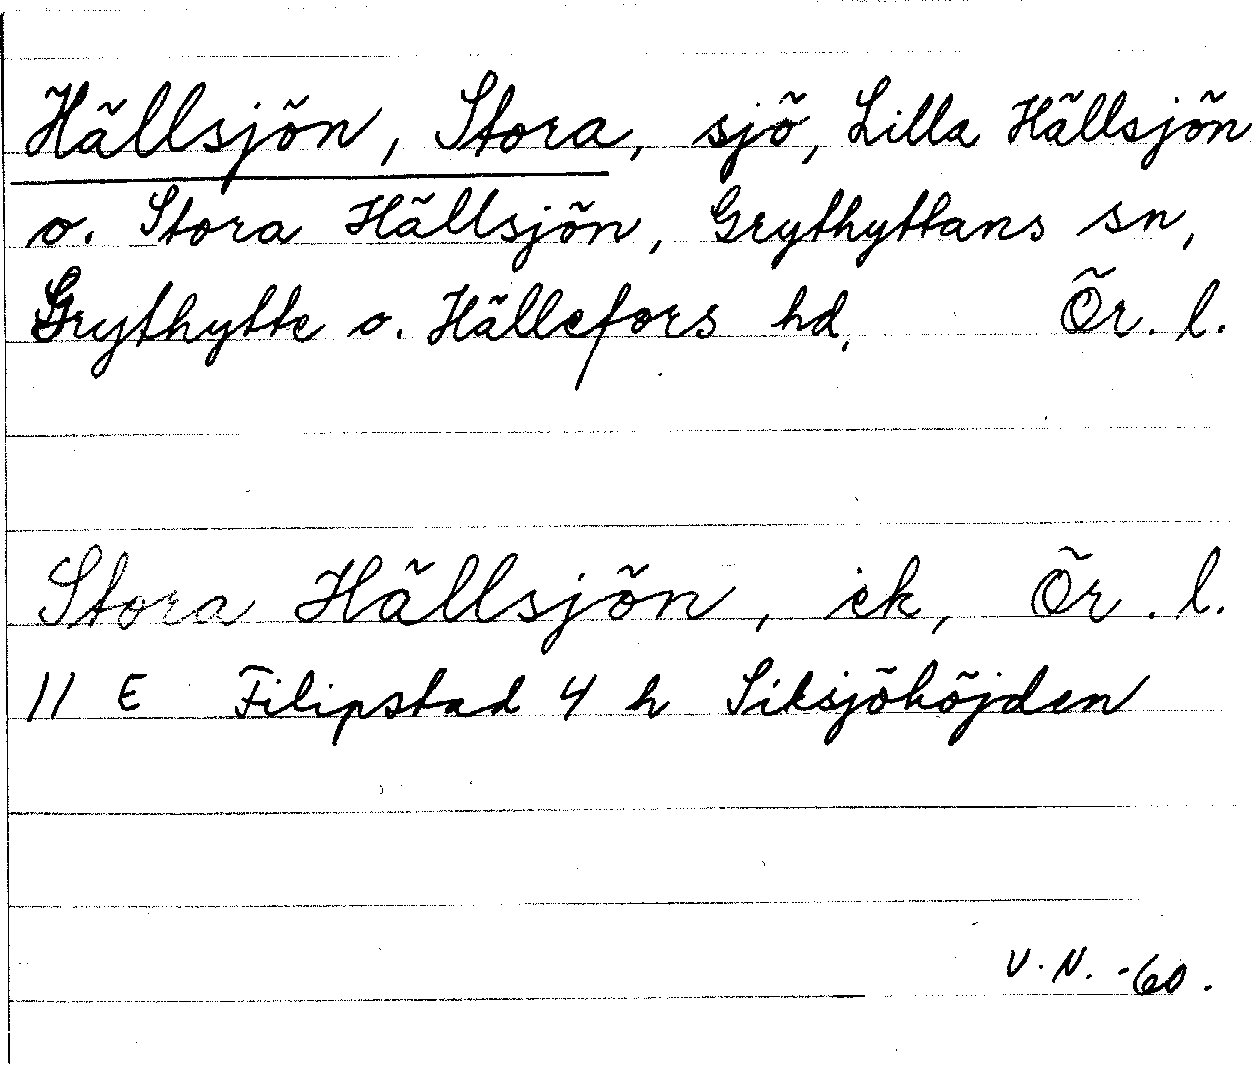 Hällsjön, Stora, sjö, Lilla Hällsjön
o. Stora Hällsjön, Grythyttans sn,
Grythytte o. Hällefors hd, Ör. l.
Stora Hällsjön, ek, Ör. l.
11 E Filipstad 4 h Siksjöhöjden
V. N. -60.